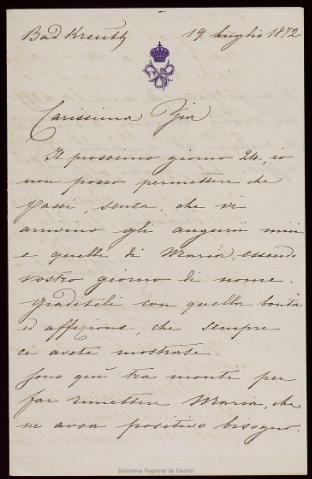 Bad Kreuth 19 Luglio 1872
Carissima Zia
Il prossimo giorno 24, io
non posso permettere che
passi, senza, che vi
arrivino gli augurii miei
e quelli di Maria, essendo
vostro giorno di nome.
Graditeli con quella bontà
ed affezione, che sempre
ci avete mostrate.
Sono quì tra monti per
far rimettere Maria, che
ne avea positivo bisogno.
Biblioteca Regional de Madrid